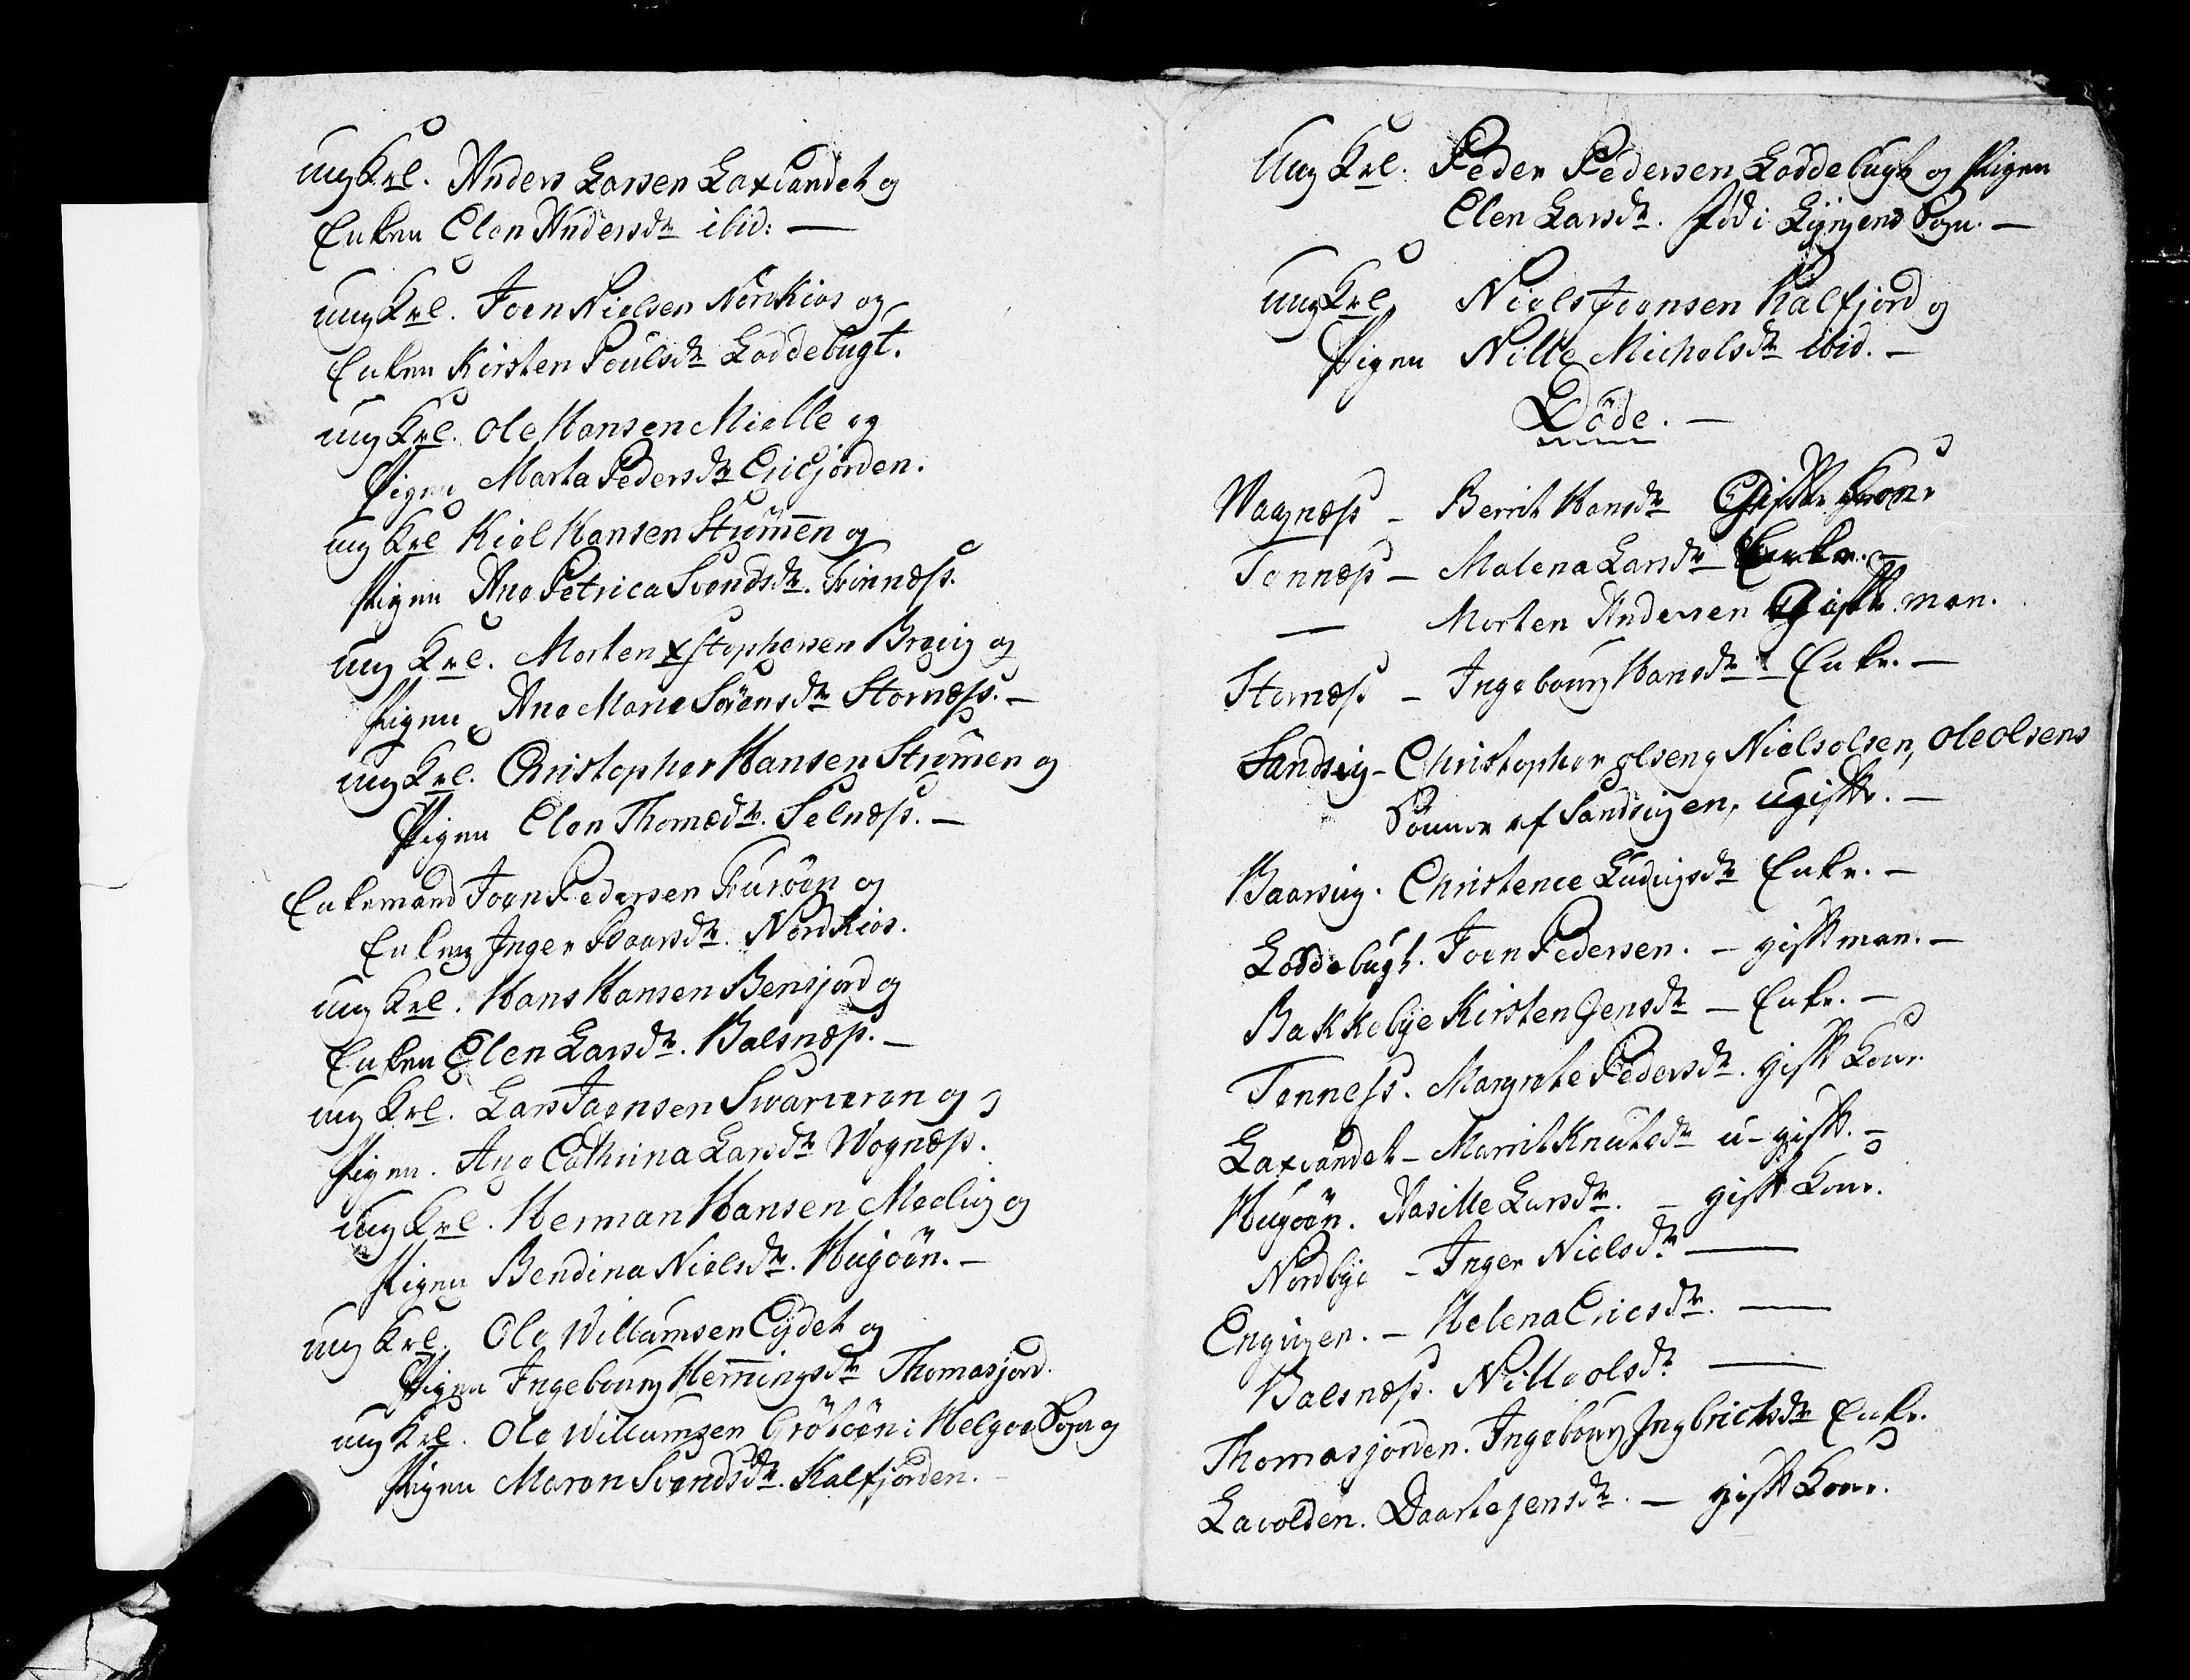 ung Krl. Anders Larsen Laxvandet og
Enken Elen Andersdtr ibid: —
ung Krl. Joen Nielsen Nordkios og
Enken Kirsten Poulsdtr Loddebugt.
ung Krl. Ole Hansen Mielle og
Pigen Marta Pedersdtr Ericfjorden.
ung Krl Kiel Hansen Strømen og
Pigen Ane Petrica Svendsdtr. Finnæss.
ung Krl. Morten Xstophersen Brevig og
Pigen Ane Marie Sørensdtr Stornæss. —
ung Krl. Christopher Hansen Strømen og
Pigen Elen Thomædtr. Selnæss. —
Enkemand Joen Pedersen Furøen og
Enken Inger Baarsdtr. Nordkios.
ung Krl. Hans Hansen Bensjord og
Enken Elen Larsdtr. Balsnæss. —
ung Krl. Lars Joensen Svarveren og
Pigen. Ane Cathrina Larsdtr Wognæss.
ung Krl. Herman Hansen Meelvig og
Pigen Bendina Nielsdtr. Hugøen. —
ung Krl. Ole Willumsen Eydet og
Pigen Ingebourg Hemingsdtr Thomasjord.
ung Krl. Ole Willumsen Grøtøen i Helgøe Sogn og
Pigen Maren Svendsdtr. Kalfjorden. —
Ung Krl. Peder Pedersen Loddebugt og Pigen
Elen Larsdtr. Fød i Lyngens Sogn. —
ung Krl. Niels Joensen Kalfjord og
Pigen Nille Michelsdtr ibid. —
Døde. —
Wagnæss — Berrit Hansdtr Gift Kone
Tennæss — Malena Larsdtr Enke. —
— Morten Andersen Gift man.
Stornæss — Ingebourg Hansdtr — Enke. —
Sandvig — Christopher Olsen og Niels Olsen, Ole Olsens
Sønner af Sandvigen, ugifte. —
Baarvig. Christence Ludvigsdtr Enke. —
Loddebugt. Joen Pedersen. — gift man. —
Bakkebye Kirsten Jensdtr — Enke. —
Tenness. Margrete Pedersdtr. gift Kone
Laxvandet — Marrit Knutsdtr u-gift. —
Hugøen. Larsdtr. — gift Kone.
Nordbye — Inger Nielsdtr —
Engvigen. — Helena Ericsdtr. —
Balsnæss. Nille Olsdtr —
Thomasjorden. Ingebourg Ingbrictsdtr Enke.
Lavolden. Daarte Jensdtr. — gift Kone.